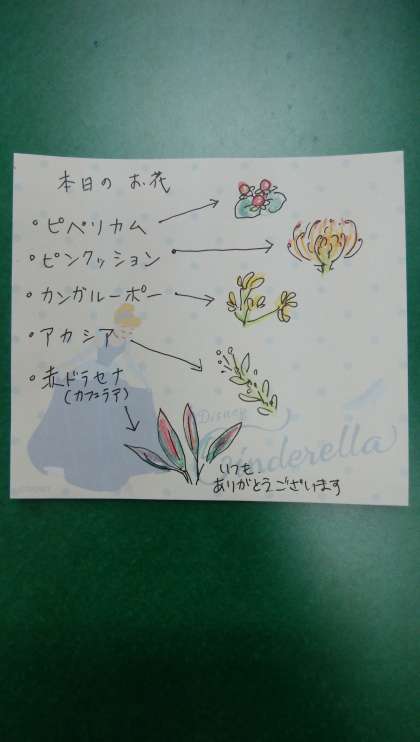 本日の お花
・ピペリカム
・ピンクッション
・カンガルーポー
・アカシア
・赤ドラセナ
(カフェラテ)
Disney
Cinderella
いつも
ありがとうございます